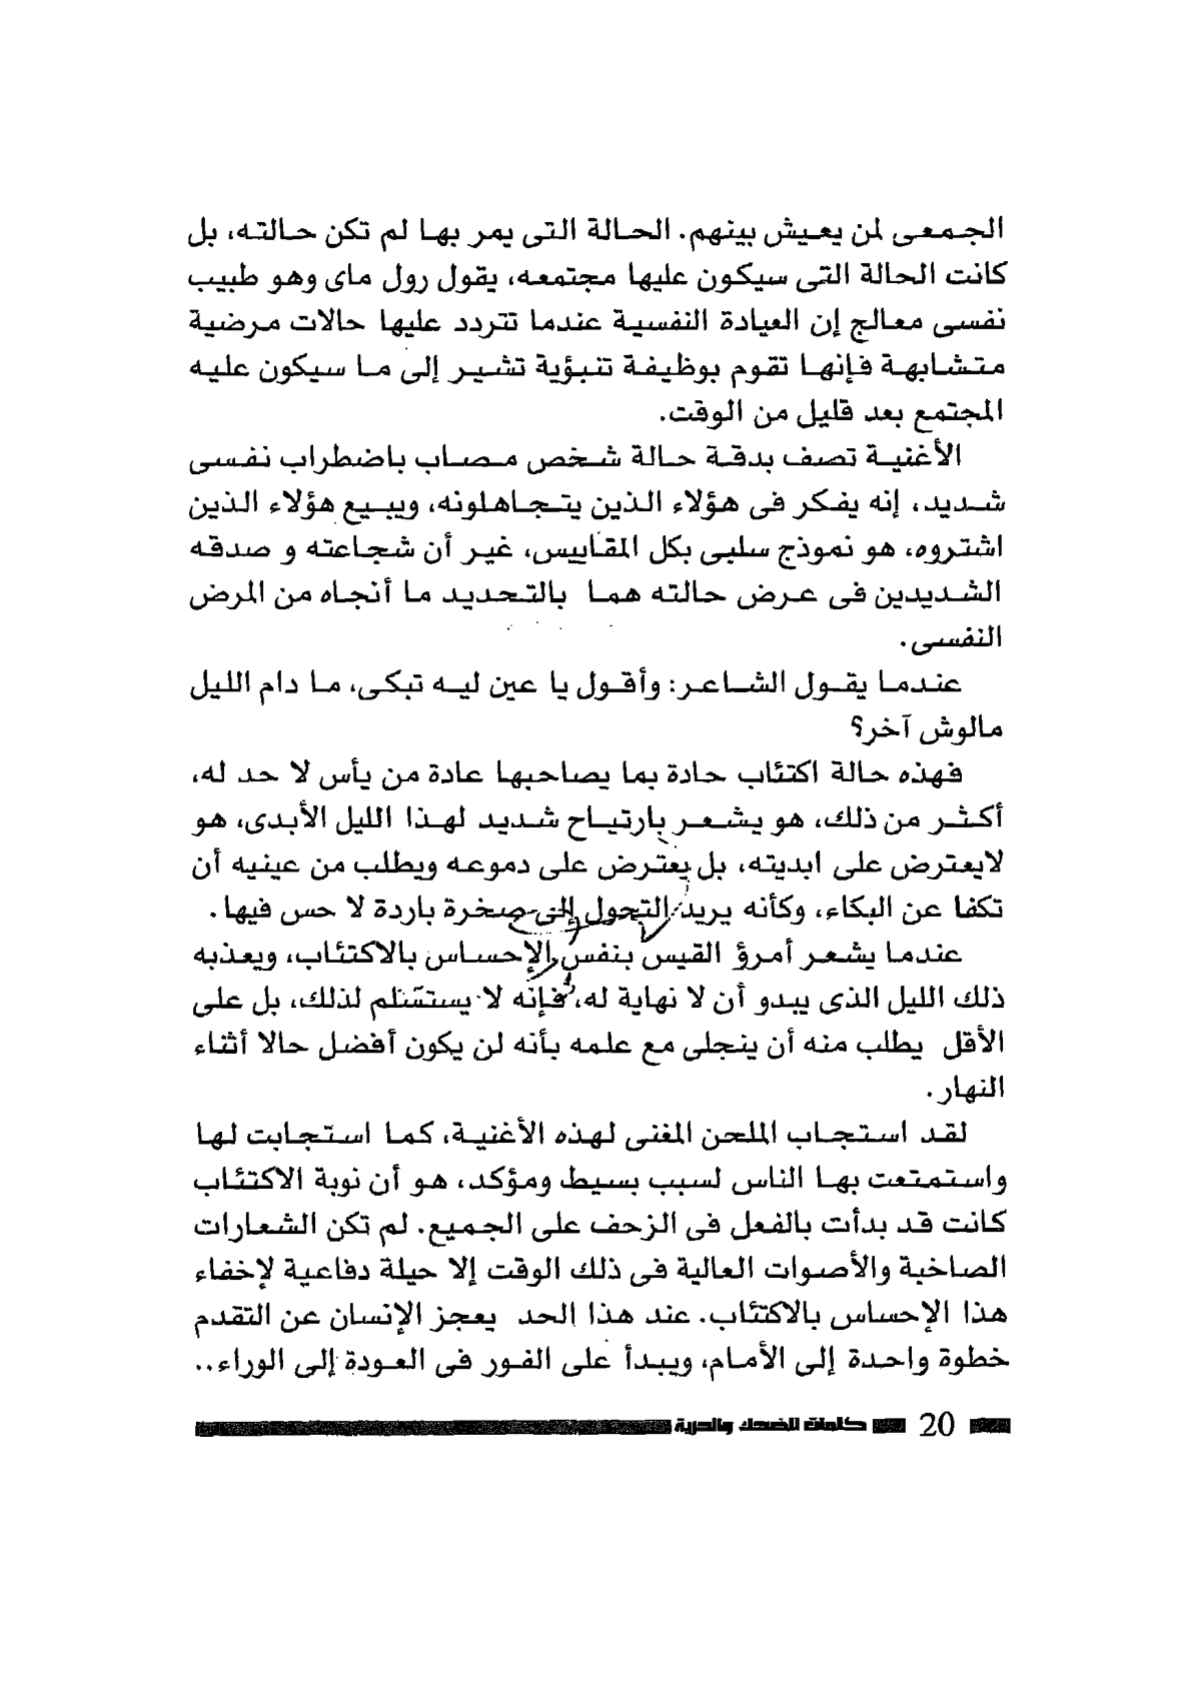 الجمعى لمن يعيش بينهم. الحالة التى يمر بها لم تكن حالته، بل
كانت الحالة التى سيكون عليها مجتمعه، يقول رول ماى وهو طبيب
نفسى معالج إن العيادة النفسية عندما تتردد عليها حالات مرضية
متشابهة فإنها تقوم بوظيفة تنبؤية تشير إلى ما سيكون عليه
المجتمع بعد قليل من الوقت.
الأغنية تصف بدقة حالة شخص مصاب باضطراب نفسى
شديد، إنه يفكر فى هؤلاء الذين يتجاهلونه، ويبيع هؤلاء الذين
اشتروه، هو نموذج سلبى بكل المقاييس، غير أن شجاعته و صدقه
الشديدين فى عرض حالته هما بالتحديد ما أنجاه من المرض
النفسى.
عندما يقول الشاعر: وأقول يا عين ليه تبكى، ما دام الليل
مالوش آخر؟
فهذه حالة اكتئاب حادة بما يصاحبها عادة من يأس لا حد له،
أكثر من ذلك، هو يشعر بارتياح شديد لهذا الليل الأبدى، هو
لايعترض على ابديته، بل يعترض على دموعه ويطلب من عينيه أن
تكفا عن البكاء، وكأنه يريد التحول إلى صخرة باردة لا حس فيها.
عندما يشعر أمرؤ القيس بنفس الإحساس بالاكتئاب، ويعذبه
ذلك الليل الذى يبدو أن لا نهاية له، فإنه لا يستسلم لذلك، بل على
الأقل يطلب منه أن ينجلى مع علمه بأنه لن يكون أفضل حالا أثناء
النهار.
لقد استجاب الملحن المغنى لهذه الأغنية، كما استجابت لها
واستمتعت بها الناس لسبب بسيط ومؤكد، هو أن نوبة الاكتئاب
كانت قد بدأت بالفعل فى الزحف على الجميع. لم تكن الشعارات
الصاخبة والأصوات العالية فى ذلك الوقت إلا حيلة دفاعية لإخفاء
هذا الإحساس بالاكتئاب. عند هذا الحد يعجز الإنسان عن التقدم
خطوة واحدة إلى الأمام، ويبدأ على الفور فى العودة إلى الوراء..
20 كلمات للضحك والحرية